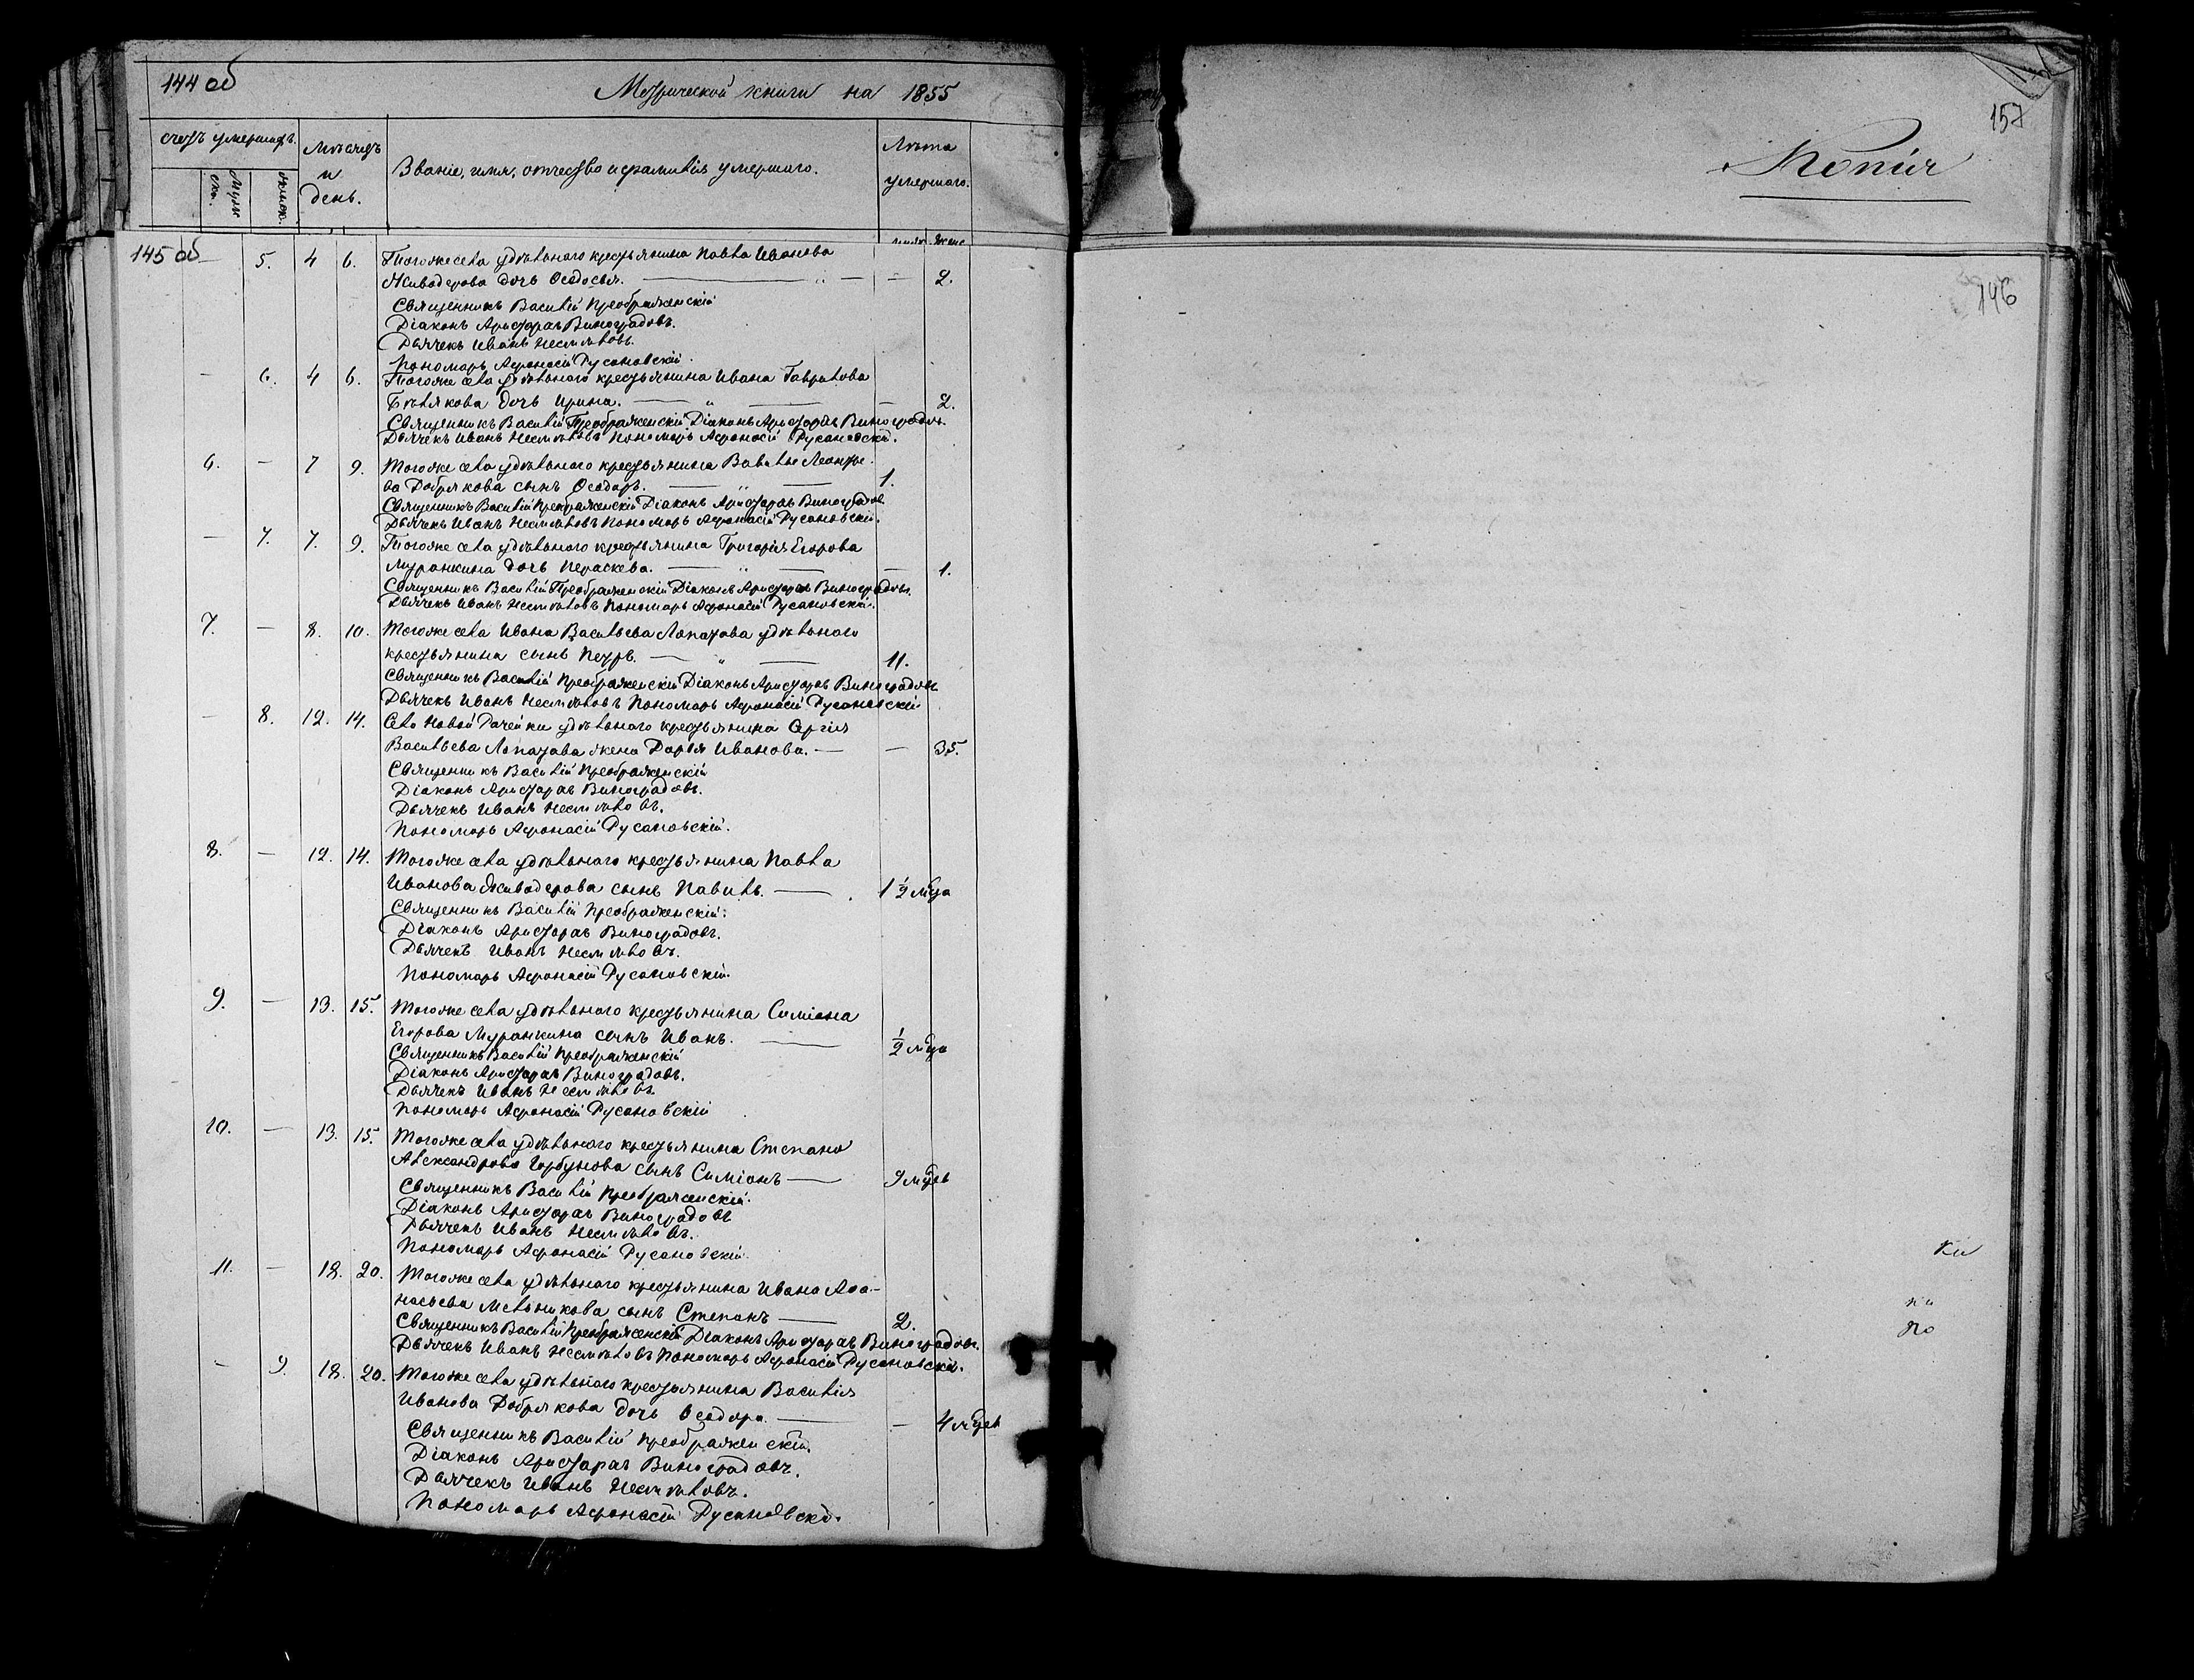 144 об
Метрической книги на 1855
Счетъ умершихъ.
Муже
ска.
женск.
Мѣсяцъ
и
день.
Званіе, имя, отчество и фамилія умершаго.
Лѣта
умершаго.
145 об
муж. женс
— 5. 4 6. Тогоже села удѣльнаго крестьянина Павла Иванова
Живодерова дочь Ѳеодосья. — — 2.
Священникъ Василій Преображенскій
Діаконъ Аристархъ Виноградовъ.
Дьячекъ Иванъ Несмѣловъ.
Пономарь Афанасій Русановскій.
— 6. 4 6. Тогоже села удѣльнаго крестьянина Ивана Гаврилова
Бѣлякова дочь Ирина. — „ — — 2.
Священникъ Василій Преображенскій Діаконъ Аристархъ Виноградовъ.
Дьячекъ Иванъ Несмѣловъ Пономарь Афанасій Русановскій.
6. — 7 9. Тогоже села удѣльнаго крестьянина Леонтье
ва Добрякова сынъ Ѳеодоръ. — „ — 1.
Священникъ Василій Преображенскій Діаконъ Аристархъ Виноградов
Дьячекъ Иванъ Несмѣловъ Пономарь Афанасій Русановскій.
— 7. 7. 9. Тогоже села удѣльнаго крестьянина Григорія Егорова
Муранкина дочь Параскева. — „ — — 1.
Священникъ Василій Преображенскій Діаконъ Аристархъ Виноградовъ.
Дьячекъ Иванъ Несмѣловъ Пономарь Афанасій Русановскій.
7. — 8. 10. Тогоже села Ивана Васильева Лопатова удѣльнаго
крестьянина сынъ Петръ. — „ — 11.
Священникъ Василій Преображенскій Діаконъ Аристархъ Виноградовъ
Дьячекъ Иванъ Несмѣловъ Пономарь Афанасій Русановскій
— 8. 12. 14. Села Новой Рачейки удѣльнаго крестьянина Сергія
Васильева Лопатова жена Дарья Иванова. — — 35.
Священникъ Василій Преображенскій
Діаконъ Аристархъ Виноградовъ.
Дьячекъ Иванъ Несмѣловъ.
Пономарь Афанасій Русановскій.
8. — 12. 14. Тогоже села удѣльнаго крестьянина Павла
Иванова Живодерова сынъ Павилъ. — 1 1/2 мѣца
Священникъ Василій Преображенскій.
Діаконъ Аристархъ Виноградовъ.
Дьячекъ Иванъ Несмѣловъ.
Пономарь Афанасій Русановскій.
9. — 13. 15. Тогоже села удѣльнаго крестьянина Симіона
Егорова Муранкина сынъ Иванъ. — 1/2 мѣца
Священникъ Василій Преображенскій
Діаконъ Аристархъ Виноградовъ.
Дьячекъ Иванъ Несмѣловъ.
Пономарь Афанасій Русановскій
10. — 13. 15. Тогоже села удѣльнаго крестьянина Степана
Александрова Горбунова сынъ Симіонъ — 9 мѣцъ
Священникъ Василій Преображенскій.
Діаконъ Аристархъ Виноградовъ
Дьячекъ Иванъ Несмѣловъ.
Пономарь Афанасій Русановскій.
11. — 18. 20. Тогоже села удѣльнаго крестьянина Ивана Аѳа-
насьева Мельникова сынъ Степанъ — 2.
Священникъ Василій Преображенскій Діаконъ Аристархъ Виноградовъ.
Дьячекъ Иванъ Несмѣловъ Пономарь Афанасій Русановскій.
— 9. 18. 20. Тогоже села удѣльнаго крестьянина Василія
Иванова Добрякова дочь Ѳеодора. — — 4 мѣцъ
Священникъ Василій Преображенскій.
Діаконъ Аристархъ Виноградовъ.
Дьячекъ Иванъ Несмѣловъ.
Пономарь Афанасій Русановскій.
157
Копія
146